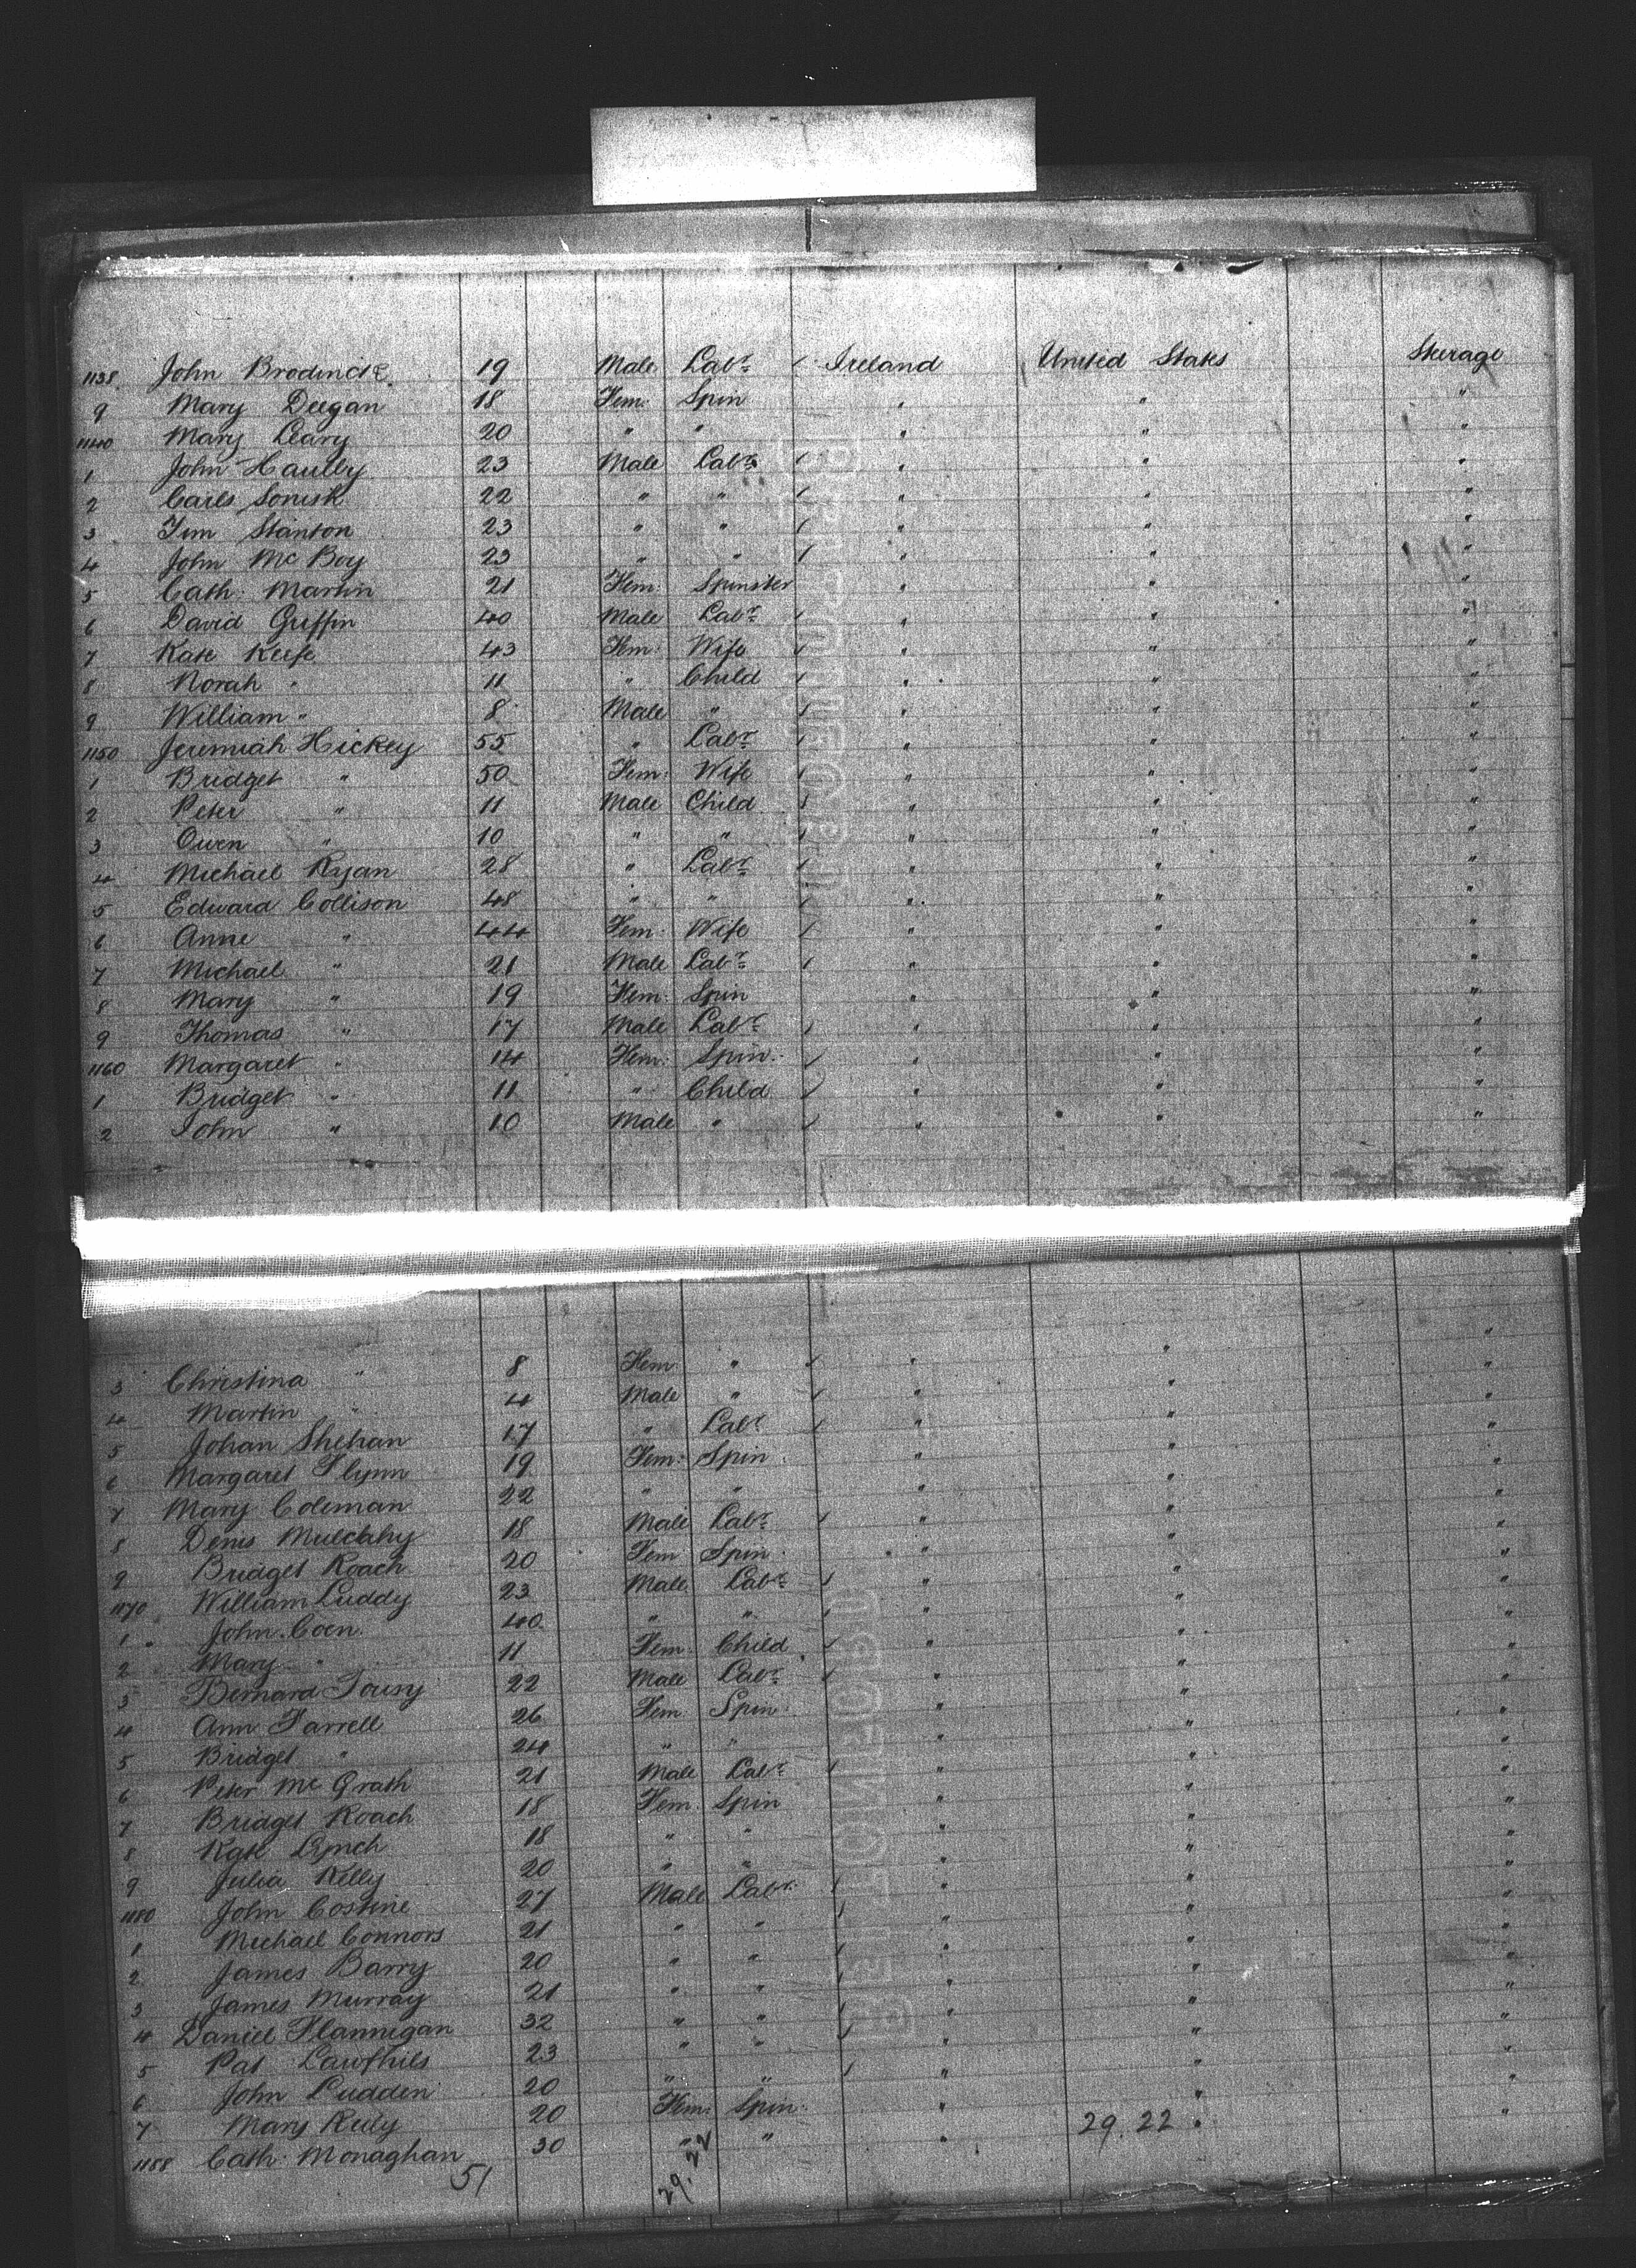 1138 John Brodrick 19 Male Labr Ireland United States Steerage
9 Mary Deegan 18 Fem: Spin " " "
1140 Mary Leary 20 " " " " "
1 John Haulby 23 Male Labr " " "
2 Carls Sonisk 22 " " " " "
3 Tim Stanton 23 " " " " "
4 John McBoy 23 " " " " "
5 Cath: Martin 21 Fem: Spinster " " "
6 David Griffin 40 Male Labr " " "
7 Kate Keefe 43 Fem: Wife " " "
8 Norah " 11 " Child " " "
9 William " 8 Male " " " "
1150 Jeremiah Hickey 55 " Labr " " "
1 Bridget " 50 Fem: Wife " " "
2 Peter " 11 Male Child " " "
3 Owen " 10 " " " " "
4 Michael Ryan 28 " Labr " " "
5 Edward Collison 48 " " " " "
6 Anne " 44 Fem: Wife " " "
7 Michael " 21 Male Labr " " "
8 Mary " 19 Fem: Spin " " "
9 Thomas " 17 Male Labr " " "
1160 Margaret " 14 Fem: Spin " " "
1 Bridget " 11 " Child " " "
2 John " 10 Male " " " "
3 Christina " 8 Fem " " " "
4 Martin " 4 Male " " " "
5 Johan Shehan 17 " Labr " " "
6 Margaret Flynn 19 Fem: Spin " " "
7 Mary Coleman 22 " " " " "
8 Denis Mulcahy 18 Male Labr " " "
9 Bridget Roach 20 Fem Spin " " "
1170 William Luddy 23 Male Labr " " "
1 John Coen 40 " " " " "
2 Mary " 11 Fem Child " " "
3 Bernard 22 Male Labr " " "
4 Ann Farrell 26 Fem Spin " " "
5 Bridget " 24 " " " " "
6 Peter McGrath 21 Male Labr " " "
7 Bridget Roach 18 Fem Spin " " "
8 Kate Lynch 18 " " " " "
9 Julia Kelly 20 " " " " "
1180 John Costine 27 Male Labr " " "
1 Michael Connors 21 " " " " "
2 James Barry 20 " " " " "
3 James Murray 21 " " " " "
4 Daniel Flannigan 32 " " " " "
5 Pat 23 " " " " "
6 John Ludden 20 " " " " "
7 Mary Reily 20 Fem: Spin " " "
1188 Cath: Monaghan 30 " " " 29.22 " "
51 29.22